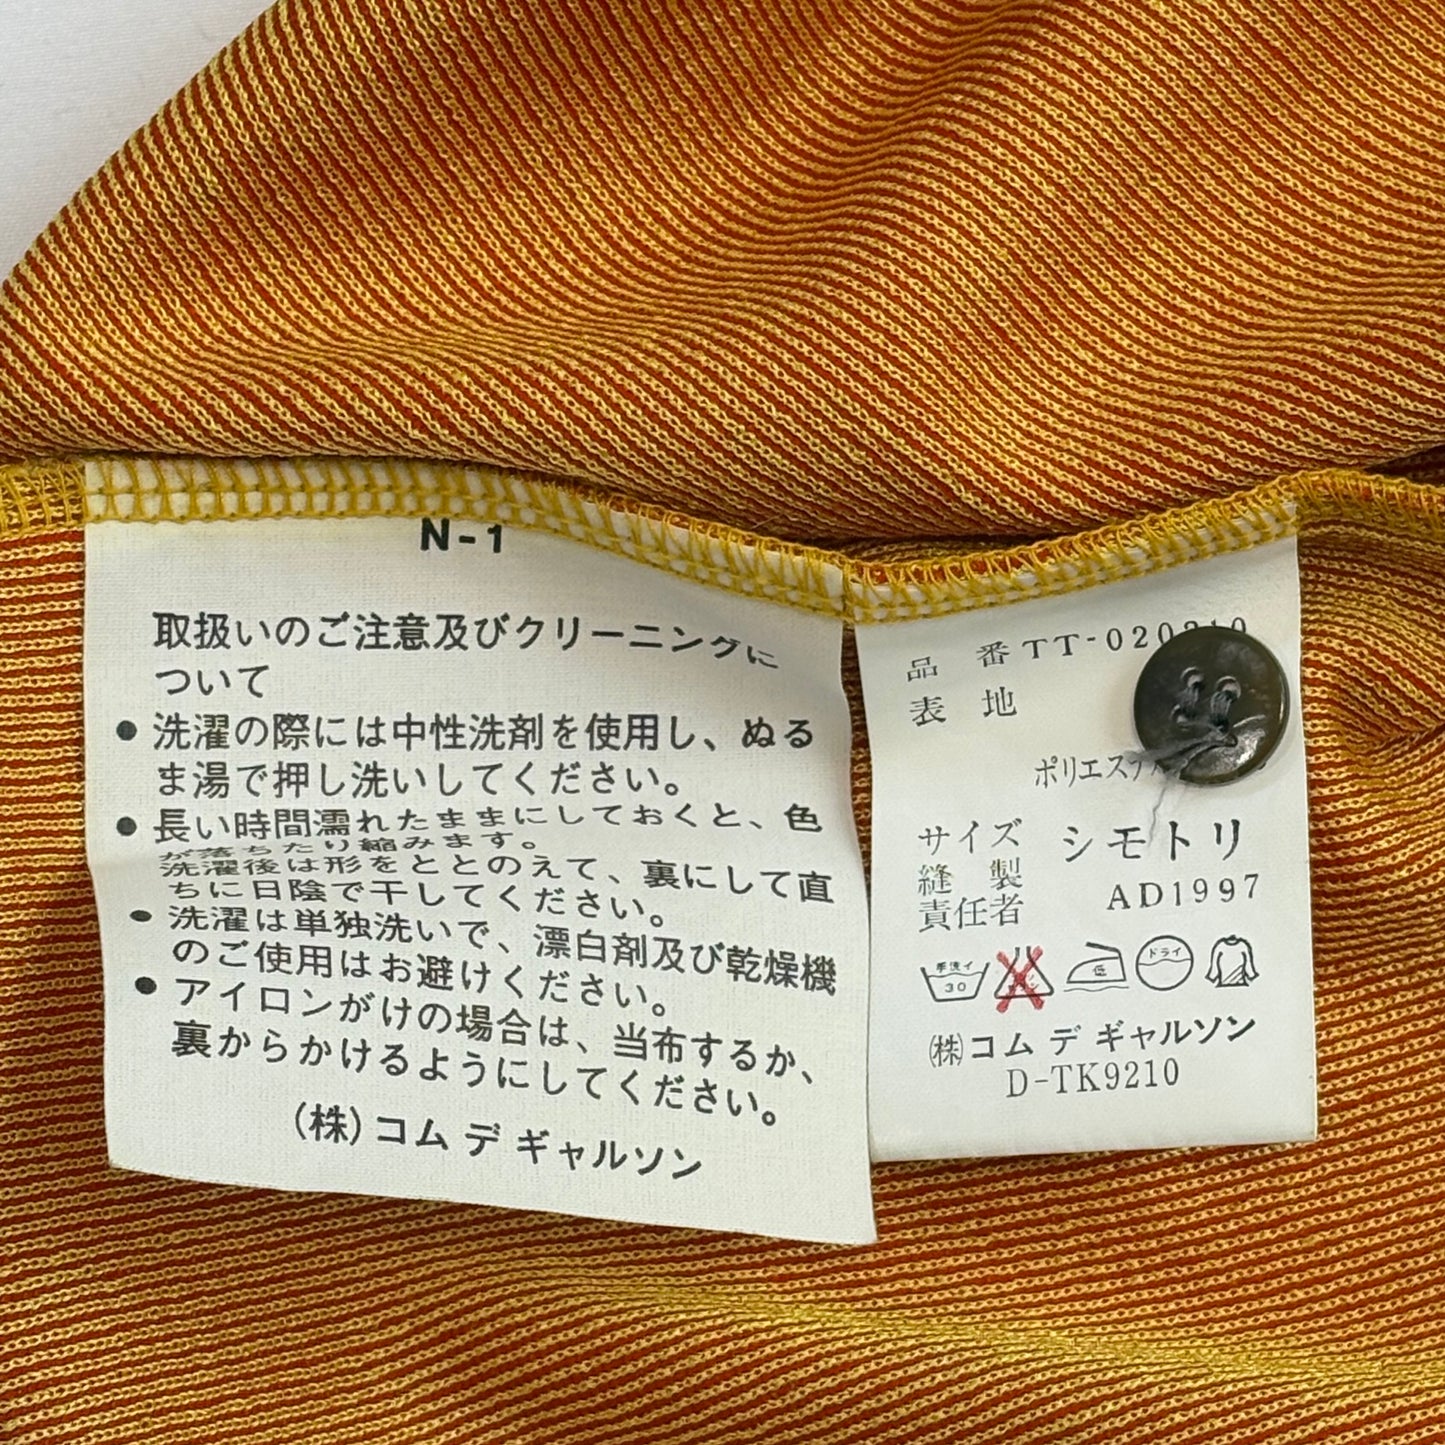 N-1
取扱いのご注意及びクリーニングに
ついて
● 洗濯の際には中性洗剤を使用し、ぬる
ま湯で押し洗いしてください。
● 長い時間濡れたままにしておくと、色
が落ちたり縮みます。
洗濯後は形をととのえて、裏にして直
ちに日陰で干してください。
● 洗濯は単独洗いで、漂白剤及び乾燥機
のご使用はお避けください。
● アイロンがけの場合は、当布するか、
裏からかけるようにしてください。
(株)コム デ ギャルソン
品 番 TT-020210
表 地
ポリエステ
サイズ シモトリ
縫 製
責任者 AD1997
手洗イ 30
低
ドライ
(株)コム デ ギャルソン
D-TK9210